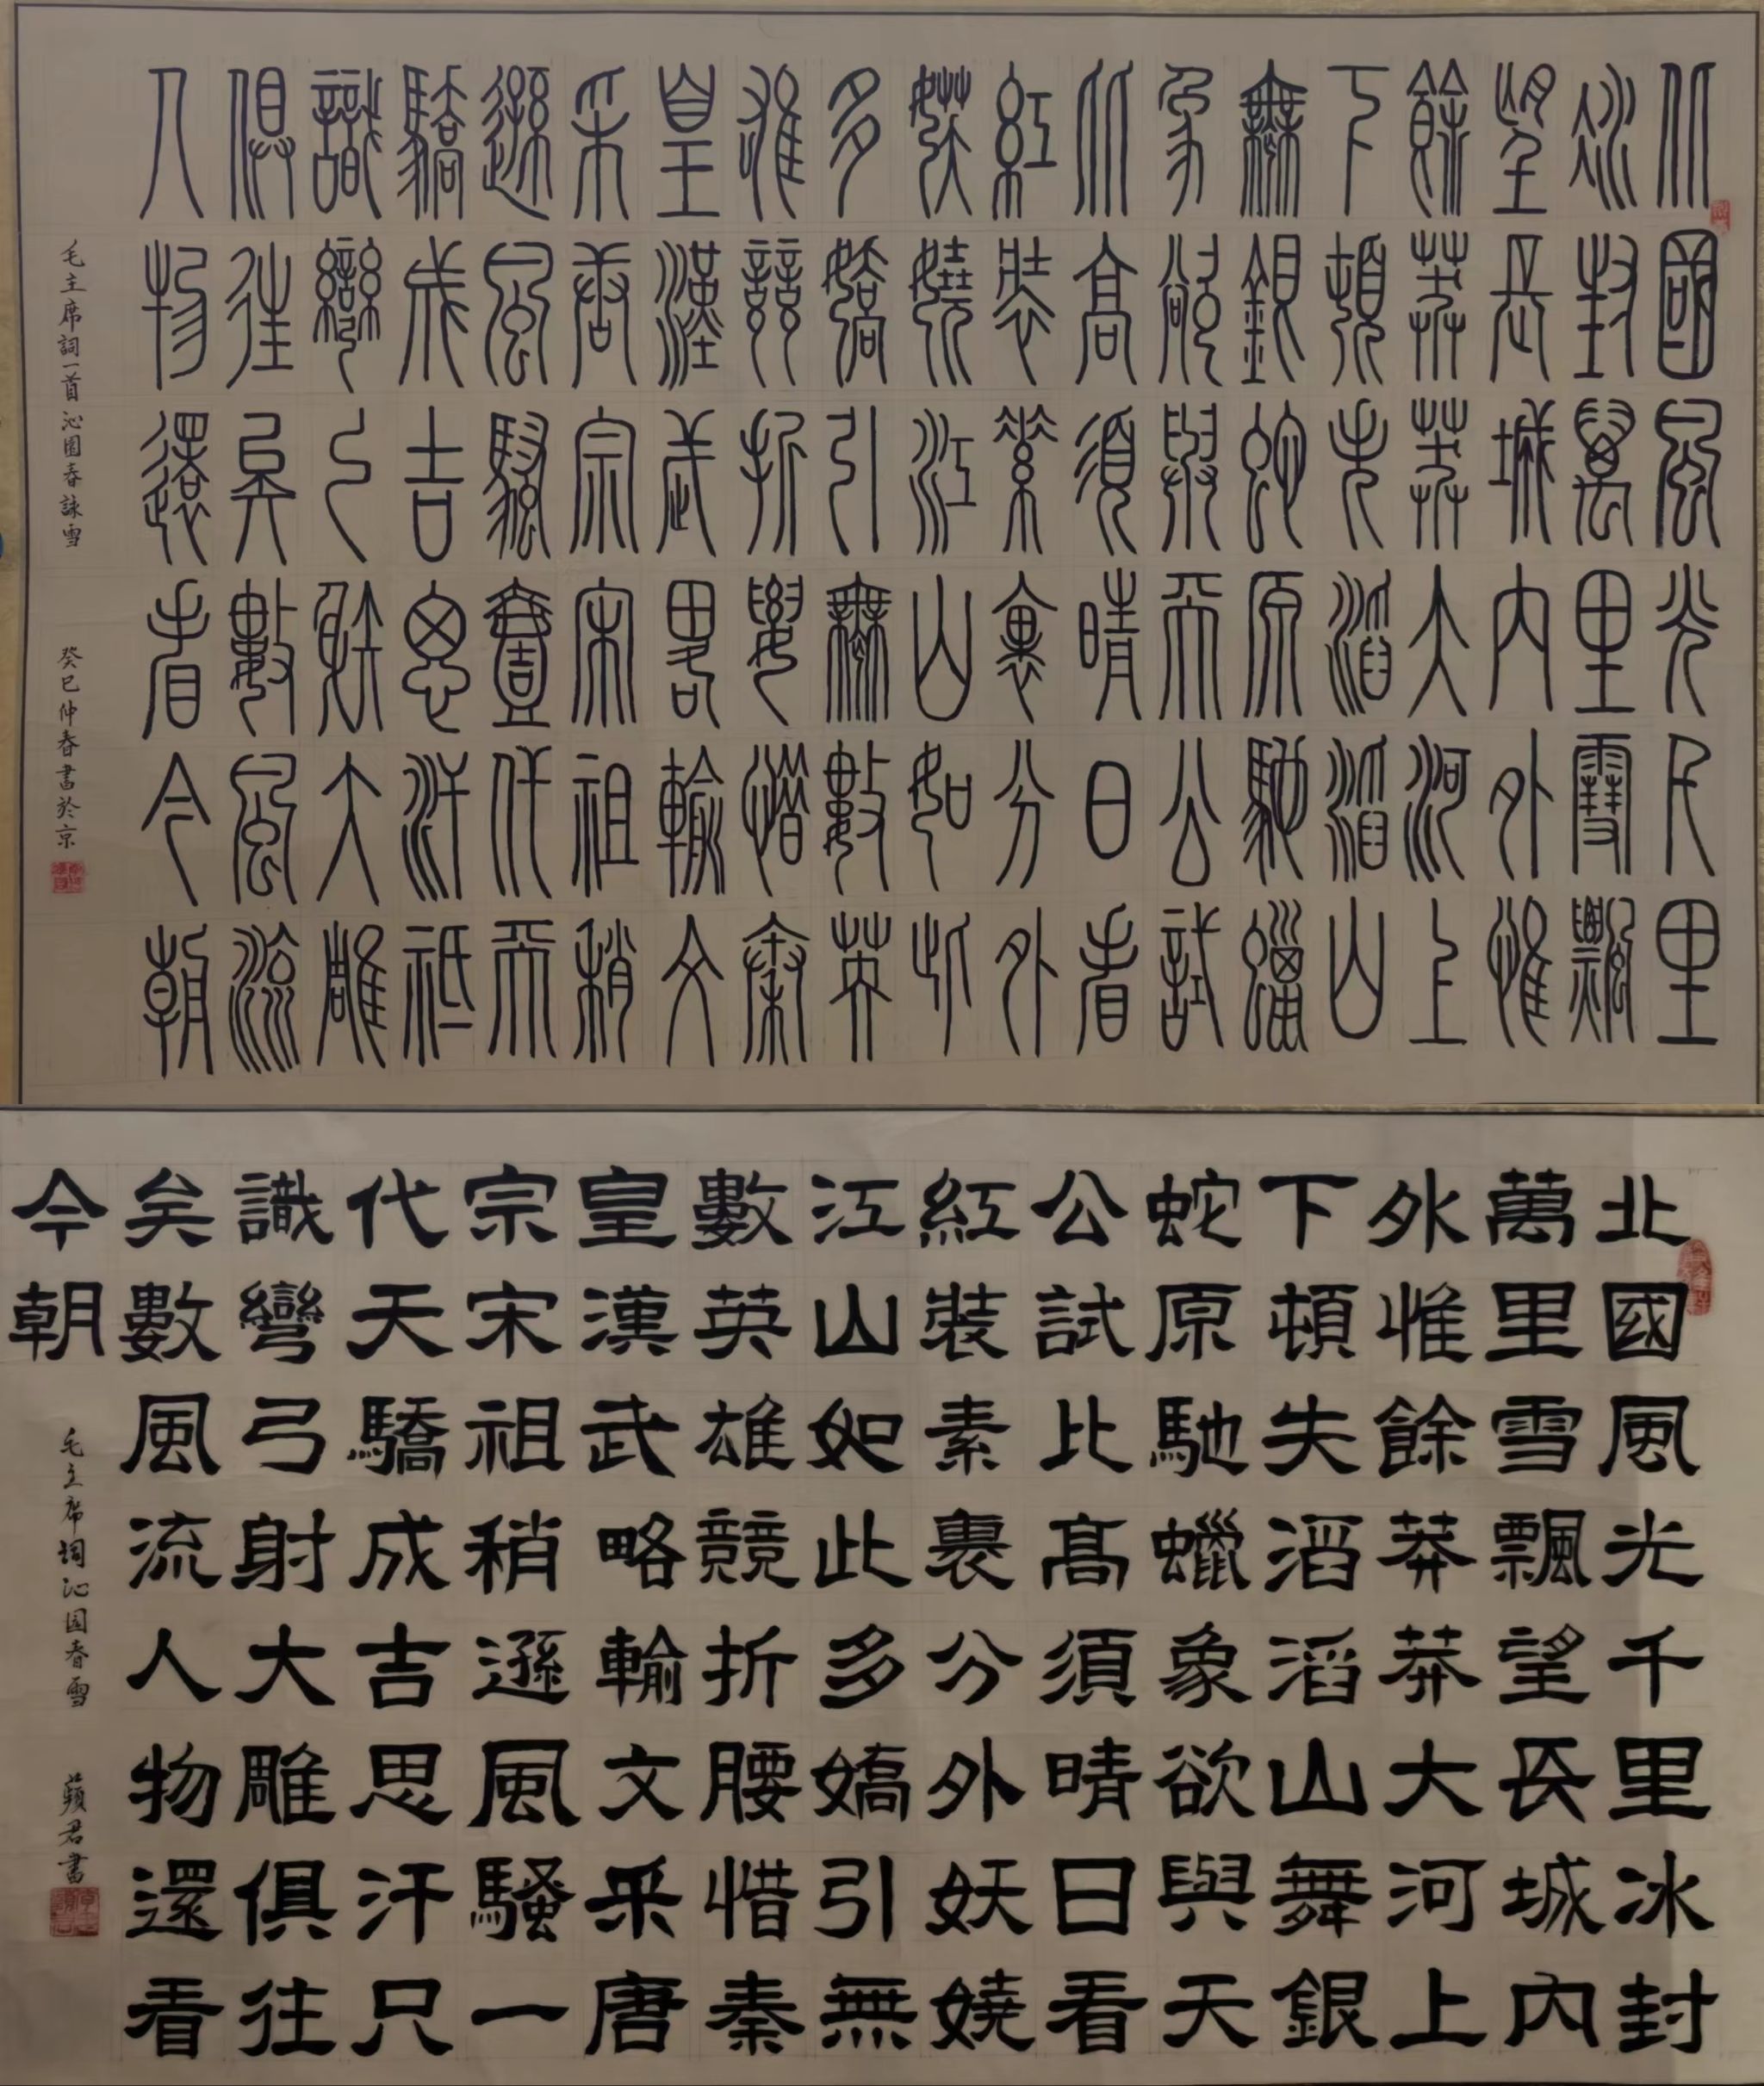 北國風光千里
冰封萬里雪飄
望長城內外惟
餘莽莽大河上
下頓失滔滔山
舞銀蛇原馳蠟
象欲與天公試
比高須晴日看
紅裝素裹分外
妖嬈江山如此
多嬌引無數英
雄競折腰惜秦
皇漢武略輸文
采唐宗宋祖稍
遜風騷壹代天
驕成吉思汗祗
識彎弓射大雕
俱往矣數風流
人物還看今朝
毛主席詞一首沁園春詠雪 癸巳仲春書於京
北國風光千里冰封
萬里雪飄望長城內
外惟餘莽莽大河上
下頓失滔滔山舞銀
蛇原馳蠟象欲與天
公試比高須晴日看
紅裝素裹分外妖嬈
江山如此多嬌引無
數英雄競折腰惜秦
皇漢武略輸文采唐
宗宋祖稍遜風騷一
代天驕成吉思汗只
識彎弓射大雕俱往
矣數風流人物還看
今朝
毛主席詞沁园春雪 蘋君書